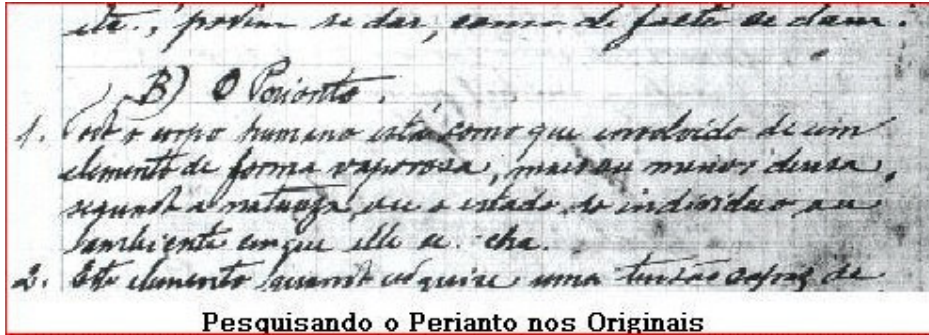 etc., podem se dar, como de facto se dam.
B) O Perianto.
1. Todo o corpo humano está como que envolvido de um
elemento de forma vaporosa, mais ou menos densa,
segundo a natureza, ou o estado do individuo ou
ambiente em que elle se acha.
2. Este elemento quando adquire uma tensão capaz de
Pesquisando o Perianto nos Originais